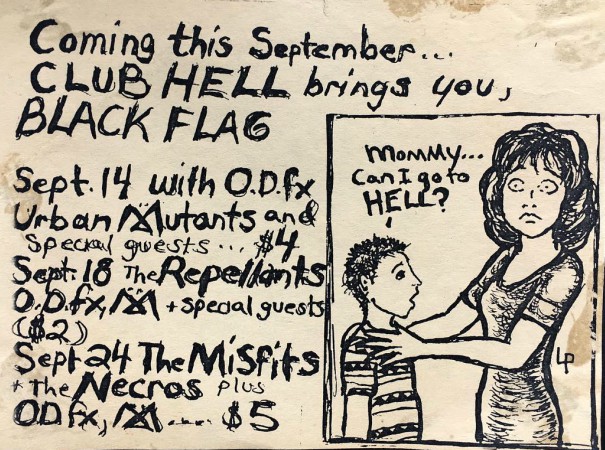 Coming this September...
CLUB HELL brings you,
BLACK FLAG
Sept. 14 with O.D.fx
Urban Mutants and
special guests... $4
Sept. 18 The Repellants
O.D.fx, M + special guests
($2)
Sept 24 The Misfits
+ The Necros plus
O.D fx, M .... $5
MOMMY...
Can I go to
HELL?
LP